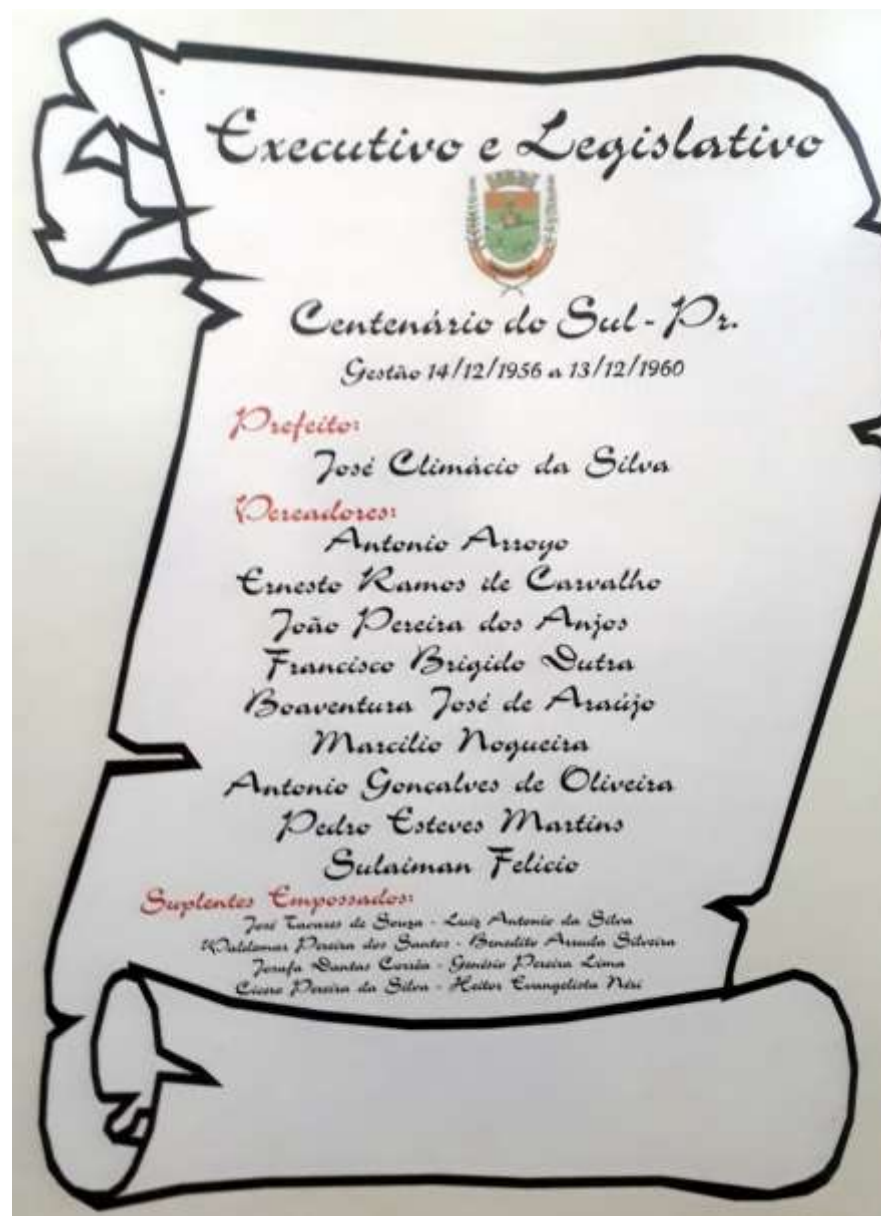 Executivo e Legislativo
Centenário do Sul - Pr.
Gestão 14/12/1956 a 13/12/1960
Prefeito:
José Climácio da Silva
Vereadores:
Antonio Arroyo
Ernesto Ramos de Carvalho
João Pereira dos Anjos
Francisco Brigido Dutra
Boaventura José de Araújo
Marcilio Nogueira
Antonio Goncalves de Oliveira
Pedro Esteves Martins
Sulaiman Felicio
Suplentes Empossados:
José Tavares de Souza - Luiz Antonio da Silva
Waldemar Pereira dos Santos - Benedito Arruda Silveira
Josafa Dantas Corrêa - Genésio Pereira Lima
Cicero Pereira da Silva - Heitor Evangelista Néri